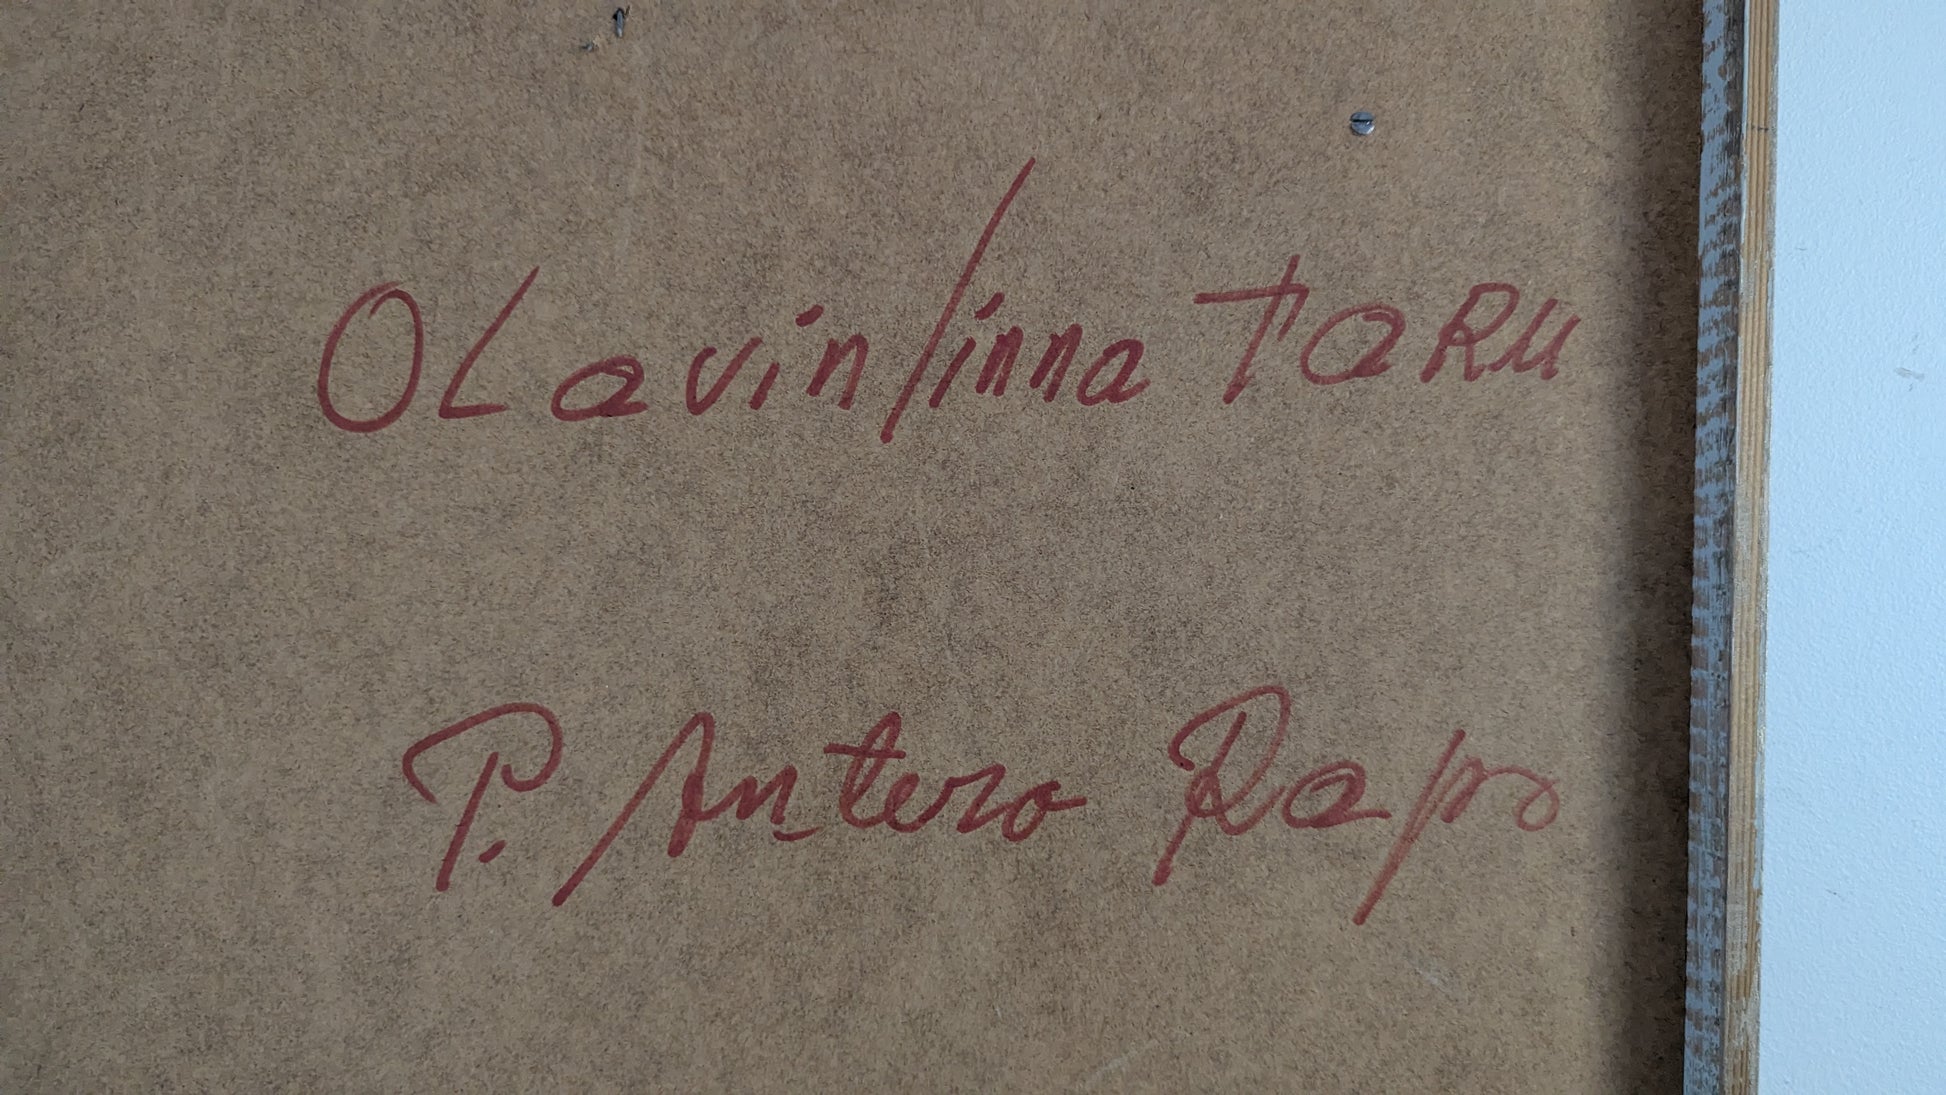 OLavinlinna TaRu
P. Antero Rapo